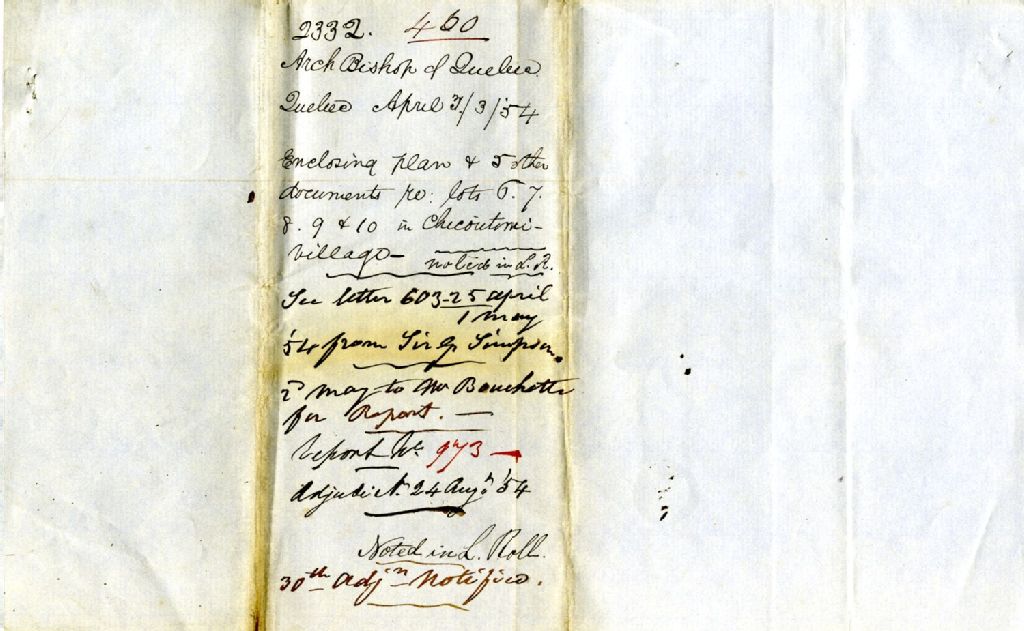 2332. 460
Arch Bishop of Quebec
Quebec April 3/3/54
Enclosing plan & 5 other
documents re: lots 6. 7.
8. 9 & 10 in Chicoutimi-
village— noted in L.R.
See letter 603-25 april
1 may
'54 from Sir G Simpson.
2d may to Mr Bouchette
for Report. —
Report No. 973 —
Adjudict. 24 Augt '54
Noted in L. Roll.
30th Adjn Notified.